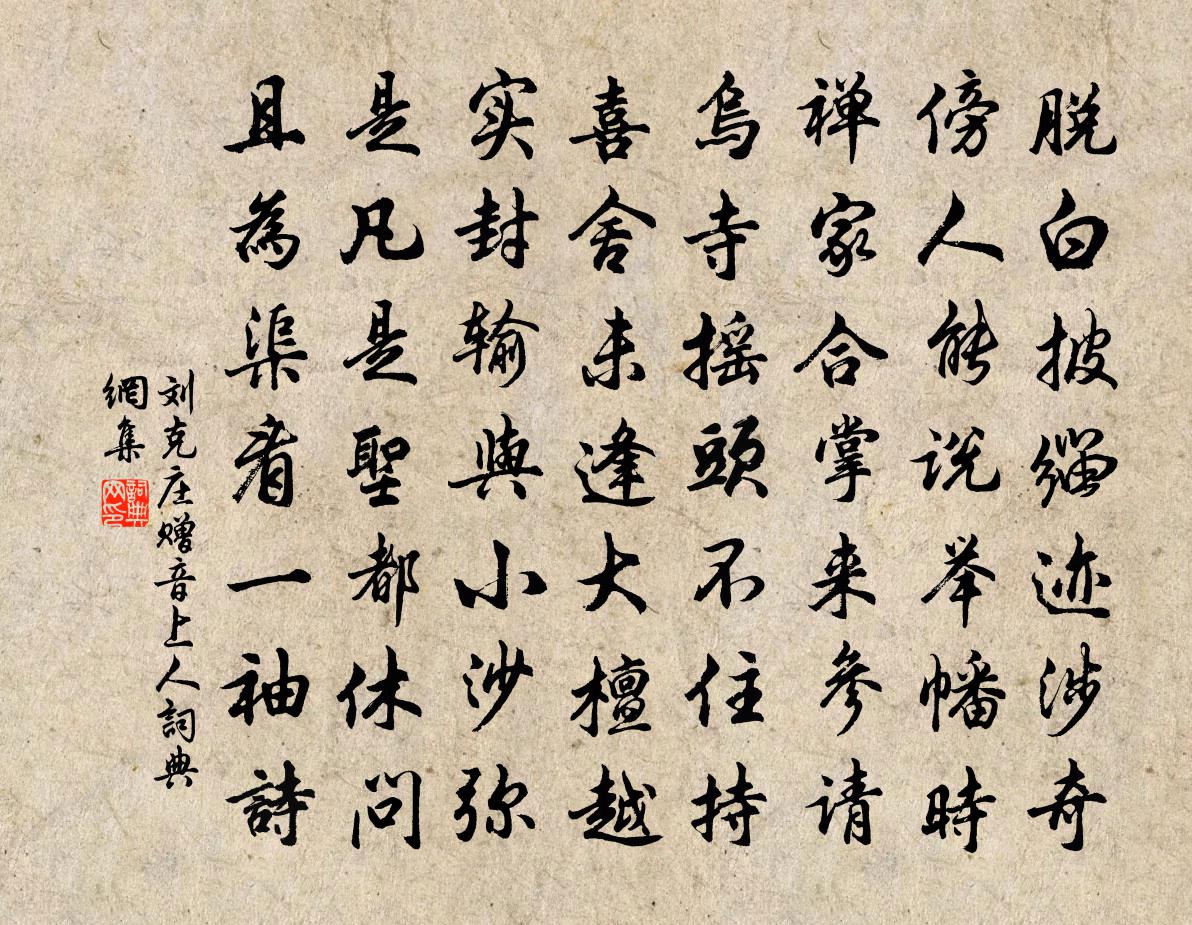 脱白披缁迹涉奇
傍人能说举幡時
禅家合掌来參请
烏寺摇頭不住持
喜舍未逢大檀越
实封输與小沙弥
是凡是聖都休问
且為渠看一袖詩
刘克庄赠音上人詞典
網集
詞典
网印